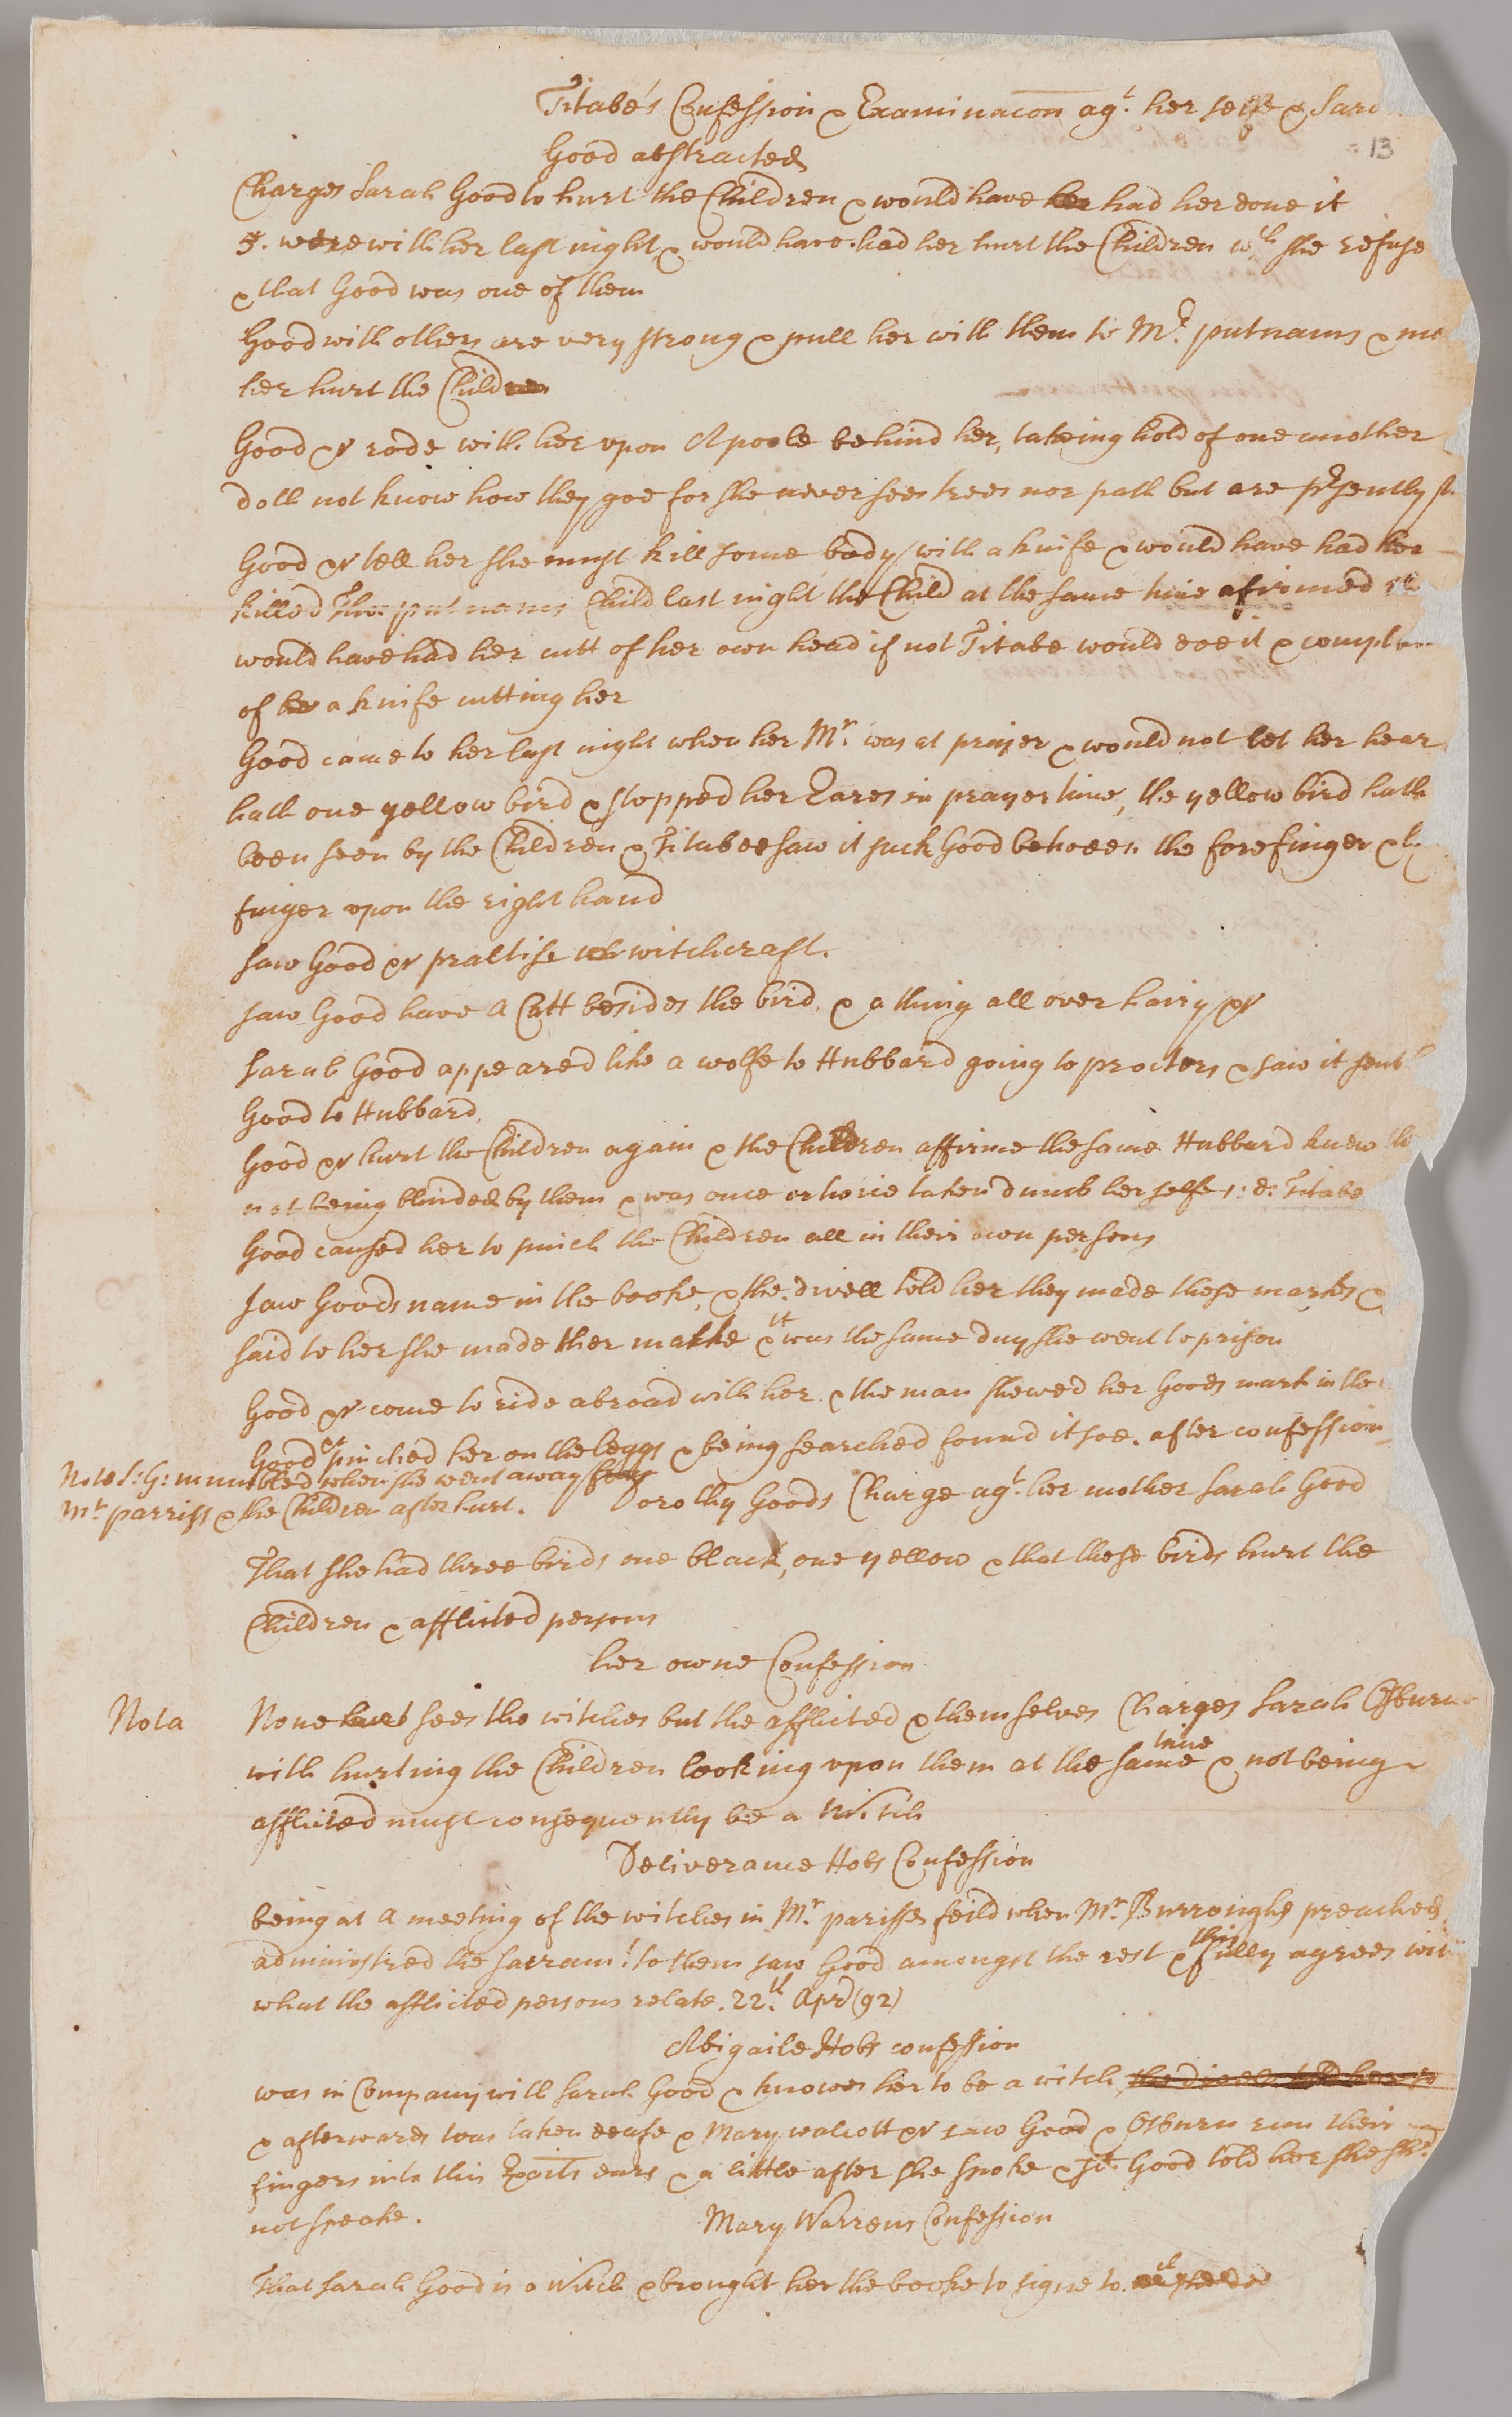 Titabe's Confession & Examinacon agt. her selfe & Sara
Good abstracted
13
Charges Sarah Good to hurt the Children & would have her had her done it
5. were with her last night & would have had her hurt the Children wch she refuse
& that Good was one of them
Good with others are very strong & pull her with them to Mr. putnams & ma
her hurt the Children
Good &c rode with her upon A poole behind her, takeing hold of one another
doth not know how they goe for she never sees trees nor path but are prsently
Good &c tell her she must kill some body with a knife & would have had her
killed Tho: putnams Child last night the Child at the same time afirmed
would have had her cutt of her own head if not Titabe would doe it & complain
of her a knife cutting her
Good came to her last night when her Mr. was at prayer & would not let her hear
hath one yellow bird & stopped her Eares in prayer time, the yellow bird hath
been seen by the Children & Titabee saw it suck Good between the forefinger &
finger upon the right hand
saw Good &c practise witchcraft.
saw Good have a Catt besides the bird, & a thing all over hairy &c
Sarah Good appeared like a wolfe to Hubbard going to procters & saw it sent
Good to Hubbard.
Good &c hurt the Children again & the Children affirme the same Hubbard knew th
not being blinded by them & was once or twice taken dumb her selfe i: e: Titabe
Good caused her to pinch the Children all in their own persons
saw Goods name in the booke, & the divell told her they made these markes &
said to her she made ther marke & it was the same day she went to prison
Good &c come to ride abroad with her & the man shewed her Goods mark in the
Good &c pinched her on the leggs & being searched found it soe. after confession
Note S: G: mumbled when she went away from
Mr. parriss & the Children after hurt. Dorothy Goods Charge agt. her mother Sarah Good
That she had three birds one black, one yellow & that these birds hurt the
Children & afflicted persons
her owne Confession
Nota None hurt sees the witches but the afflicted & themselves Charges Sarah Osburne
with hurting the Children looking upon them at the same time & not being
afflicted must consequently be a Witch
Deliverance Hobs Confession
being at a meeting of the witches in Mr. parisses feild when Mr. Burroughs preached
administred the sacramt. to them saw Good amongst the rest & this fully agrees with
what the afflicted persons relate. 22th. Apr (92)
Abigaile Hobs confession
was in Company with Sarah Good & knowes her to be a witch, the divell told her so
& afterwards was taken deafe & Mary walcott &c saw Good & Osburn run their
fingers into this Exaits ears & a little after she spoke & sd. Good told her she shd
not speake.
Mary Warrens Confession
That Sarah Good is a Witch & brought her the booke to signe to.